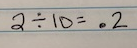 2÷10=.2